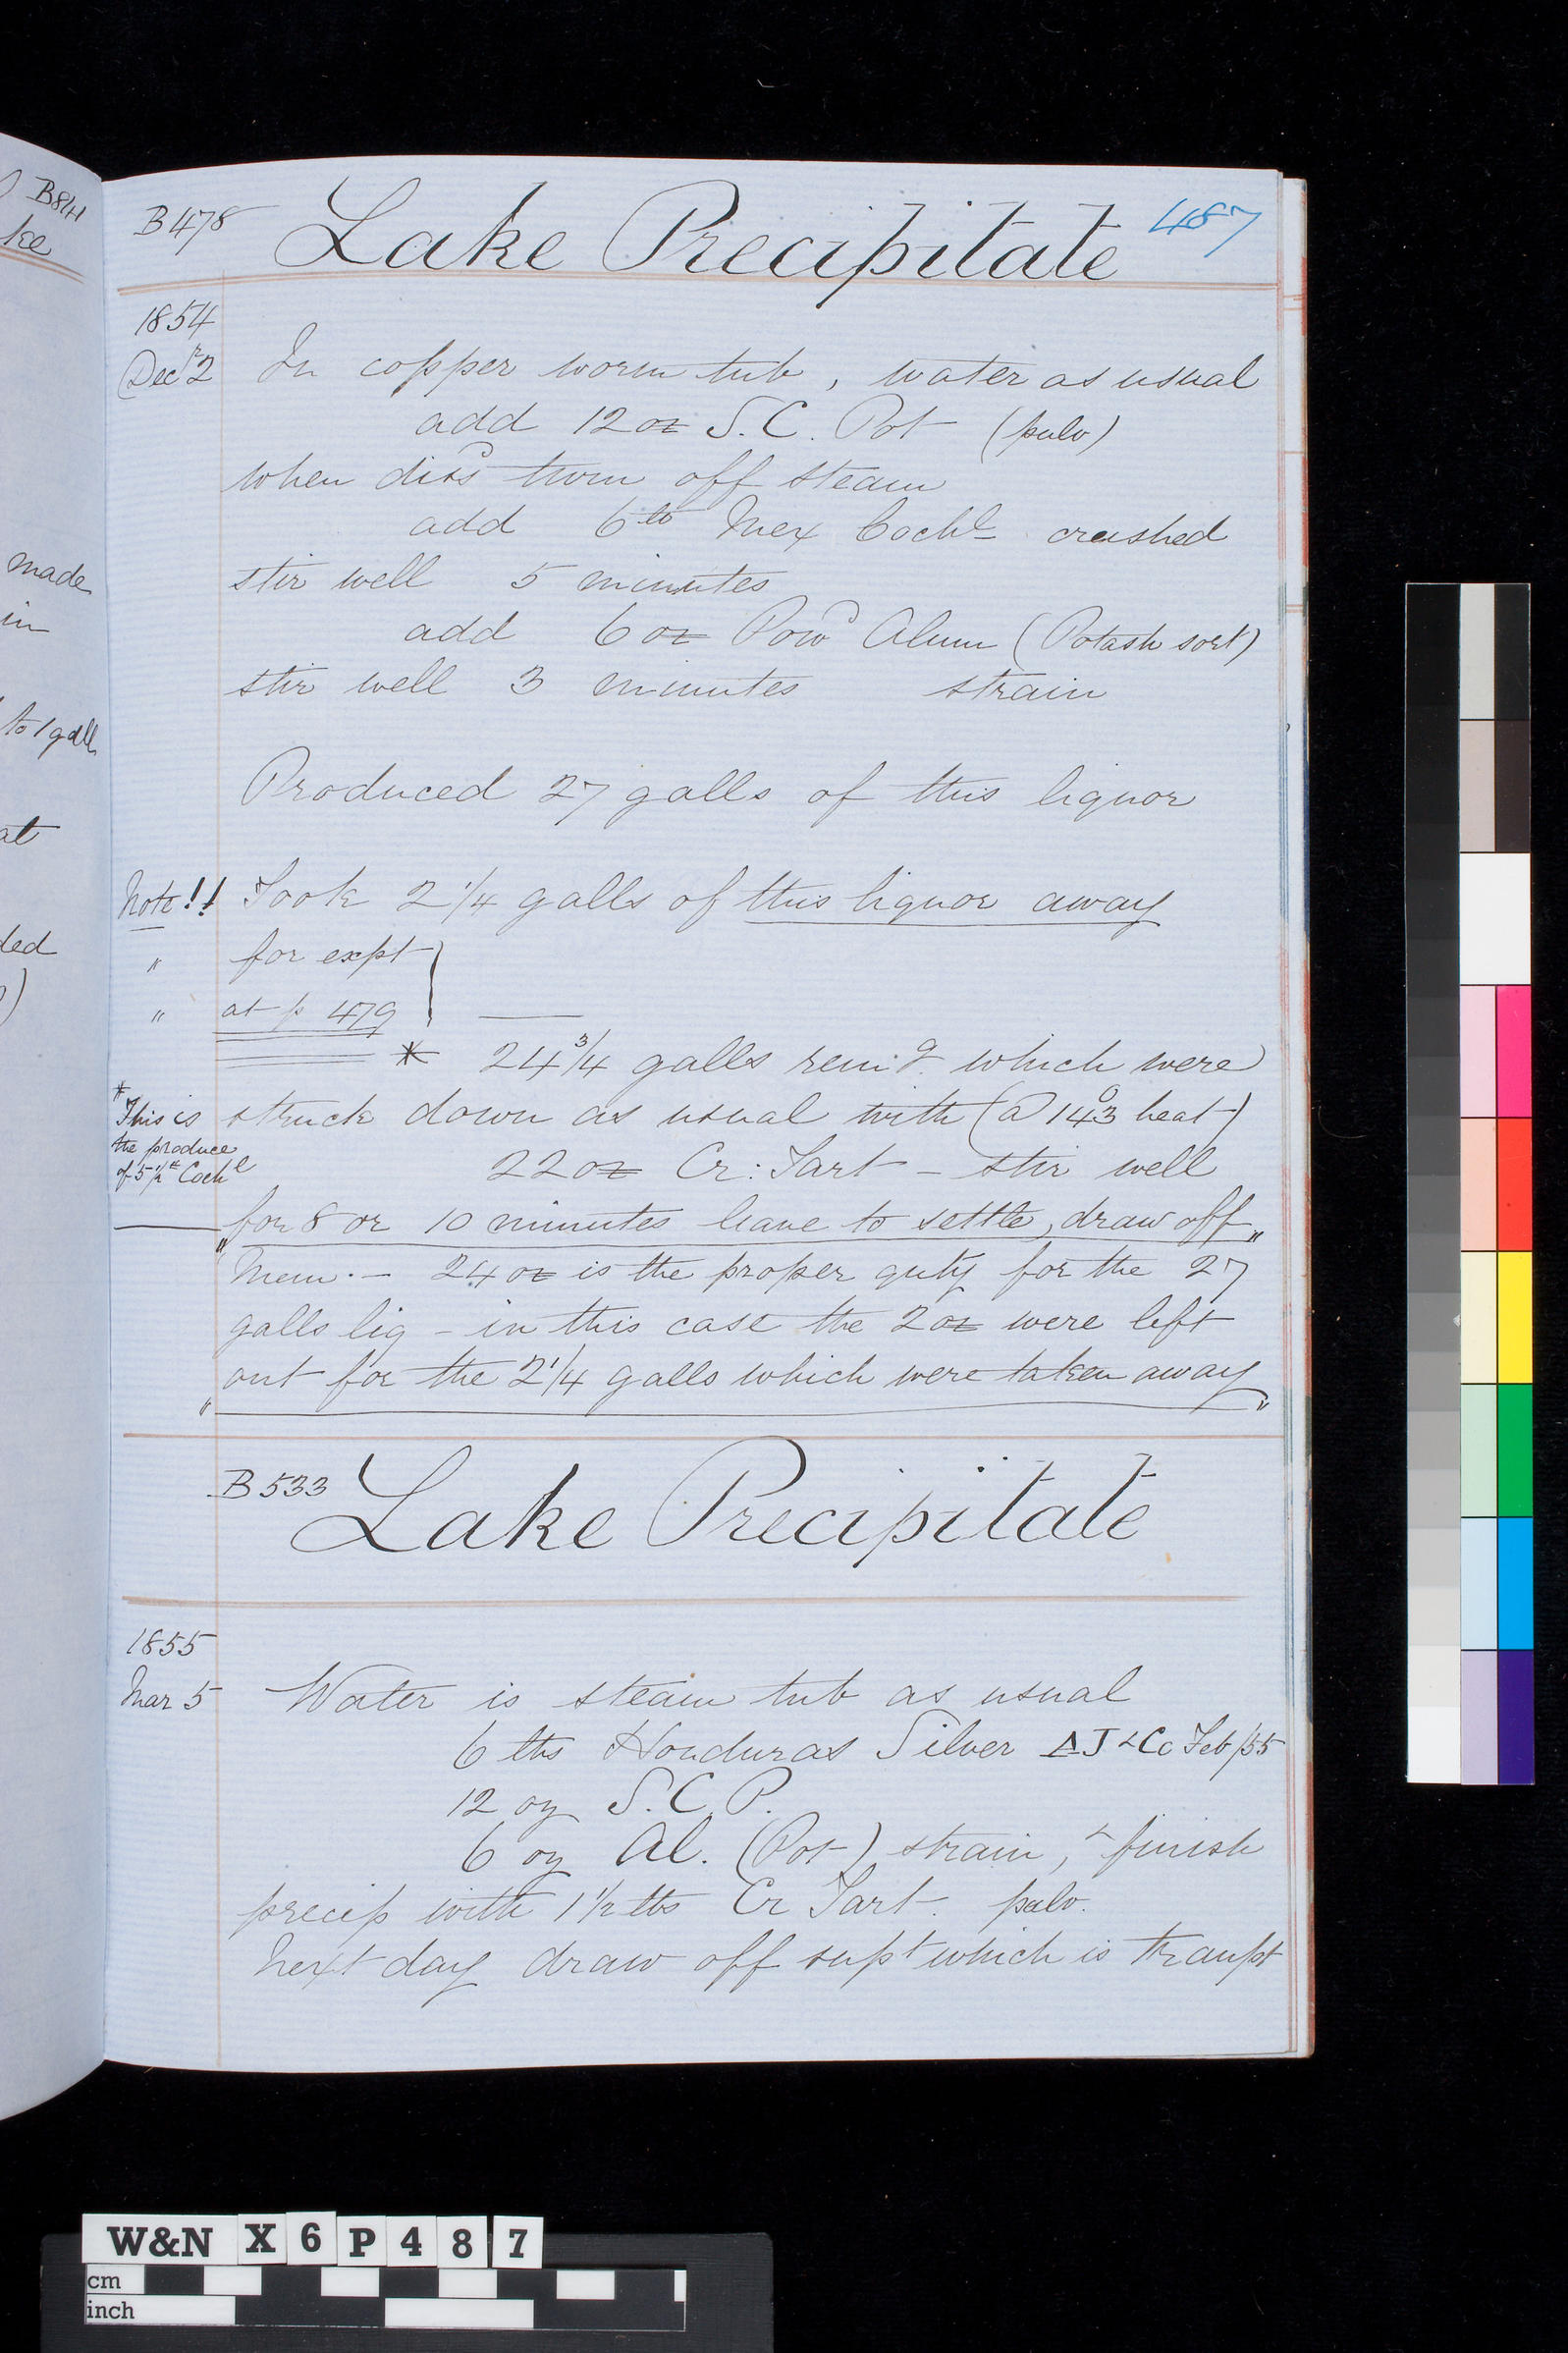 B814
ke
made
in
to 1 gall
at
ded
B478 Lake Precipitate 487
1854
Decr 2 In copper worm tub, water as usual
add 12 oz S.C. Pot (pulv)
when disd turn off steam
add 6 lb Mex Cochl crushed
stir well 5 minutes
add 6 oz Powd Alum (Potash sort)
stir well 3 minutes strain
Produced 27 galls of this liquor
Note!! Took 2 1/4 galls of this liquor away
" for expt
" at p 479
* 24 3/4 galls remg. which were
* This is struck down as usual with (a 143° heat)
the produce
of 5 1/2 lb Cochl 22 oz Cr: Tart - stir well
"for 8 or 10 minutes leave to settle, draw off"
Mem. - 24 oz is the proper quty for the 27
galls liq - in this case the 2 oz were left
"out for the 2 1/4 galls which were taken away"
B533 Lake Precipitate
1855
Mar 5 Water is steam tub as usual
6 lbs Honduras Silver AJ & Co Feb/55
12 oz S.C.P.
6 oz Al. (Pot) strain, & finish
precip with 1 1/2 lbs Cr Tart. pulv.
Next day draw off supt which is transpt
W&N X 6 P 4 8 7
cm
inch